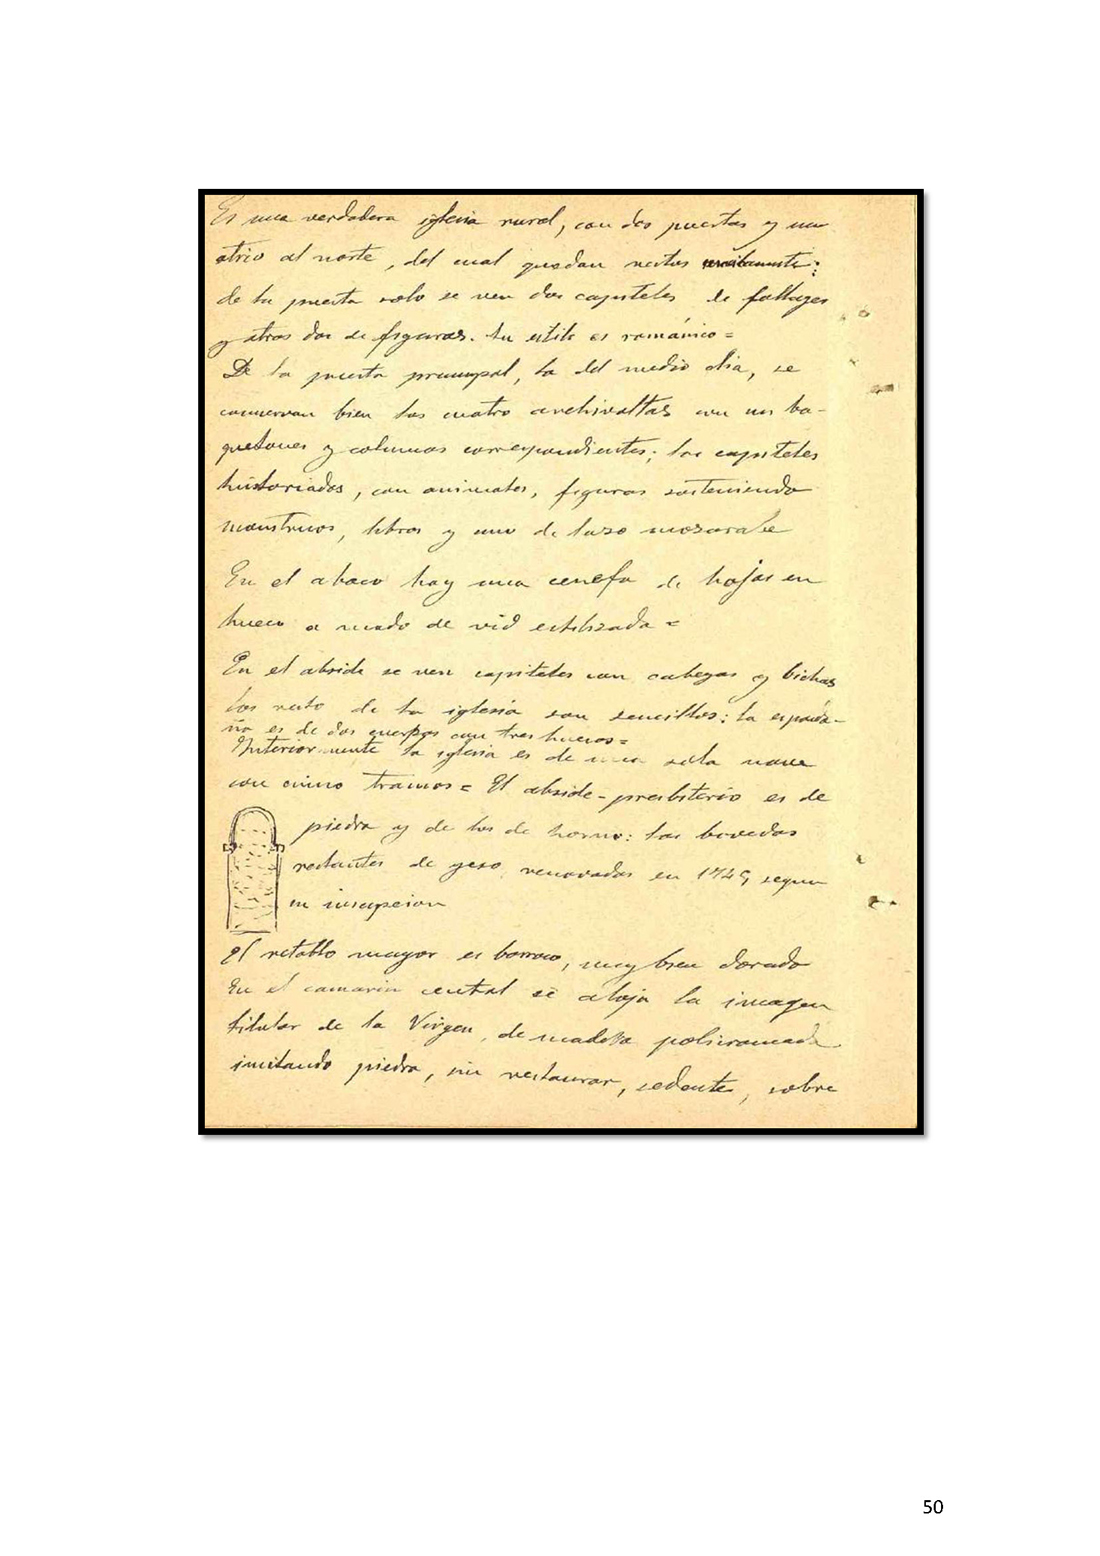 Es una verdadera iglesia rural, con dos puertas y un
atrio al norte, del cual quedan restos
de la puerta solo se ven dos capiteles de follages
y otros dos de figuras. Su estilo es románico =
De la puerta principal, la del medio dia, se
conservan bien las cuatro archivoltas con sus ba-
quetones y columnas correspondientes; los capiteles
historiados, con animales, figuras sosteniendo
monstruos, libros y uno de lazo mozarabe
En el abaco hay una cenefa de hojas en
hueco a modo de vid estilizada =
En el abside se ven capiteles con cabezas y bichas
los resto de la iglesia son sencillos: la espada-
ña es de dos cuerpos con tres huecos =
Interiormente la iglesia es de una sola nave
con cinco tramos = El abside-presbiterio es de
piedra y de los de horno: las bovedas
restantes de yeso, renovadas en 1749, segun
su inscripcion
El retablo mayor es barroco, muy bien dorado
En el camarin central se aloja la imagen
titular de la Virgen, de madera policromada
imitando piedra, sin restaurar, sedente, sobre
50